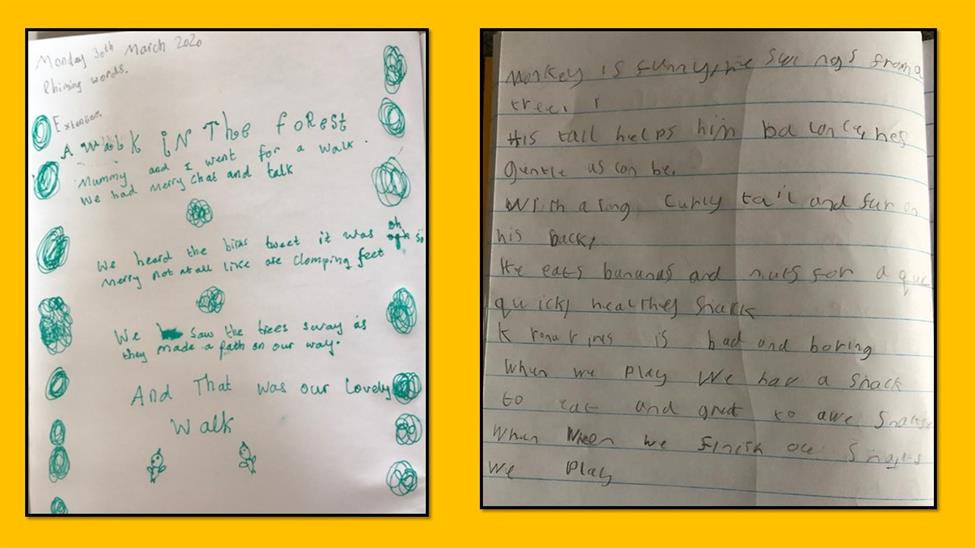 Monday 30th March 2020
Rhiming words.
Extention
A walk iN The foResT
Mummy and I went for a walk.
We had merry chat and talk
We heard the birds tweet it was oh so
merry not at all like are clomping feet
We saw the trees sway as
they made a path on our way.
And That was our Lovely
Walk
Monkey is funny, he swings from a
tree.
His tail helps him balance, hes
gentle as can be.
With a long curly tail and fur on
his back,
He eats bananas and nuts for a
quick, healthey snack
is bad and boring
When we play We hav a snack
to eat and to
When we finish our
we play